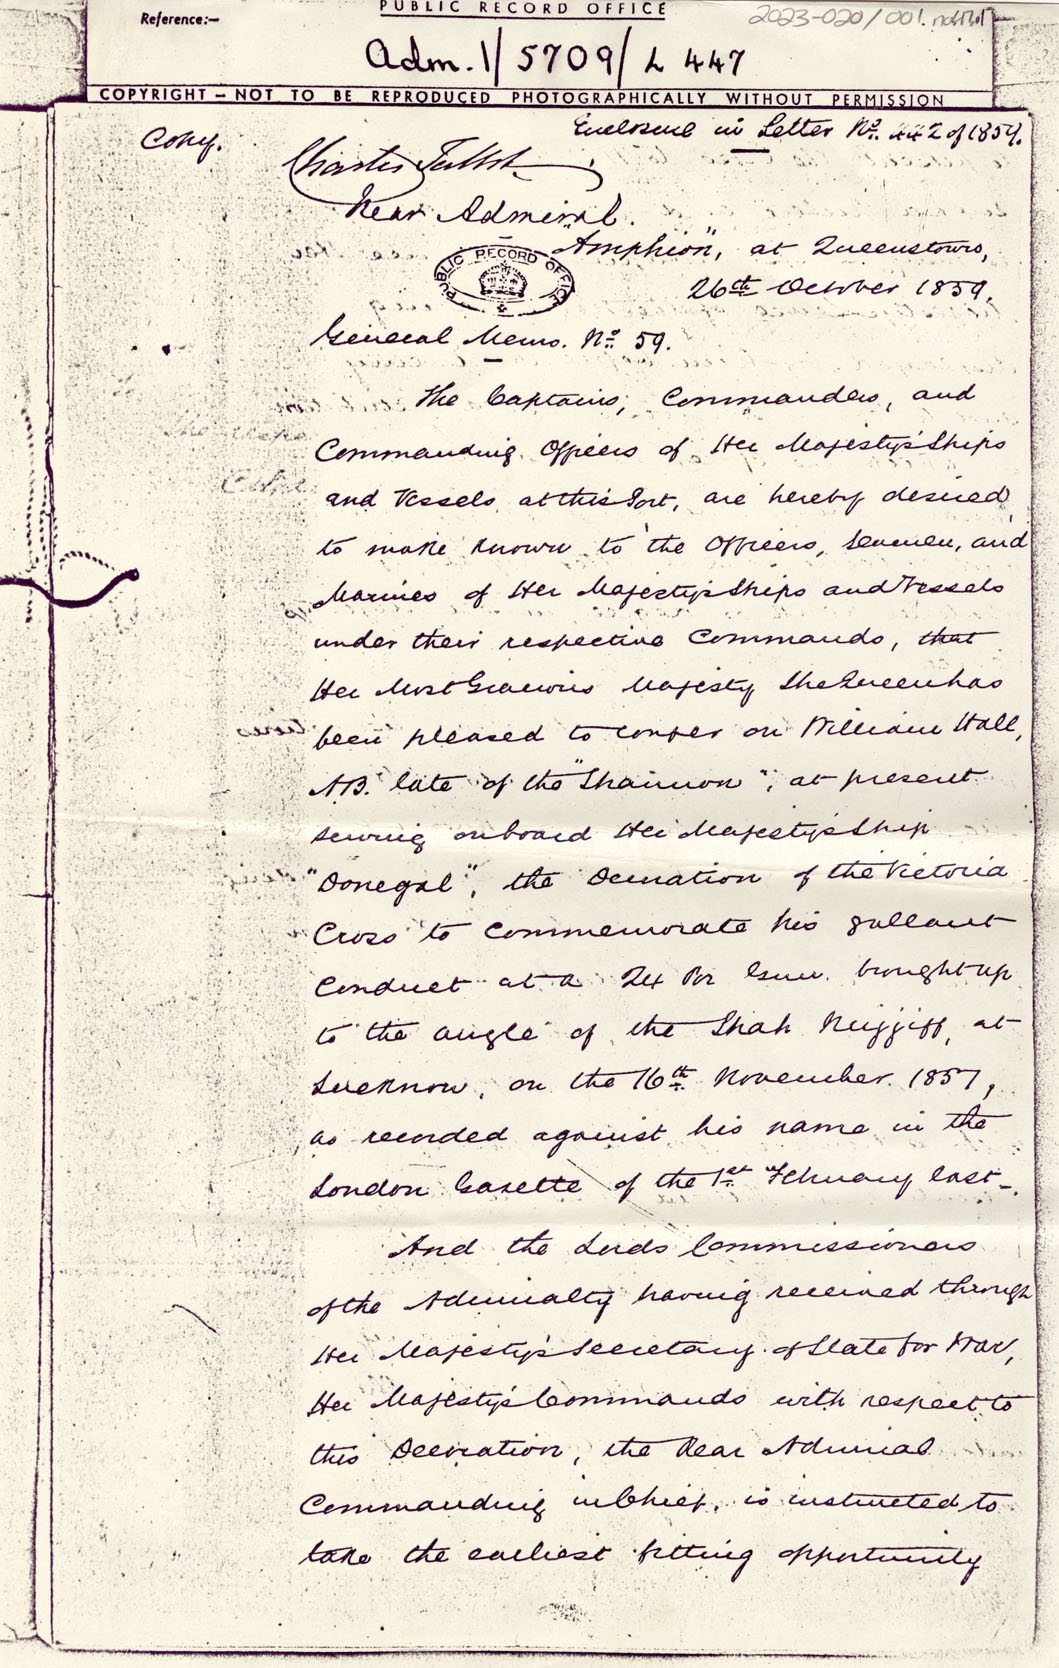 PUBLIC RECORD OFFICE
Reference:—
2023-020/001.
Adm. 1/5709/L 447
COPYRIGHT — NOT TO BE REPRODUCED PHOTOGRAPHICALLY WITHOUT PERMISSION
Enclosure in Letter No. 442 of 1859.
Copy.
Charles Talbot
Rear Admiral.
"Amphion", at Queenstown,
PUBLIC RECORD OFFICE
26th October 1859.
General Memo. No. 59.
The Captains, Commanders, and
Commanding Officers of Her Majesty's Ships
and Vessels at this Port, are hereby desired
to make known to the Officers, Seamen, and
Marines of Her Majesty's Ships and Vessels
under their respective Commands, that
Her Most Gracious Majesty The Queen has
been pleased to confer on William Hall,
A.B. late of the "Shannon", at present
serving onboard Her Majesty's Ship
"Donegal", the Decoration of the Victoria
Cross to commemorate his gallant
Conduct at a 24 Por Gun brought up
to the angle of the Shah Nujjiff, at
Lucknow, on the 16th November 1857,
as recorded against his name in the
London Gazette of the 1st February last.
And the Lords Commissioners
of the Admiralty having received through
Her Majesty's Secretary of State for War,
Her Majesty's Commands with respect to
this Decoration, the Rear Admiral
Commanding in Chief, is instructed to
take the earliest fitting opportunity